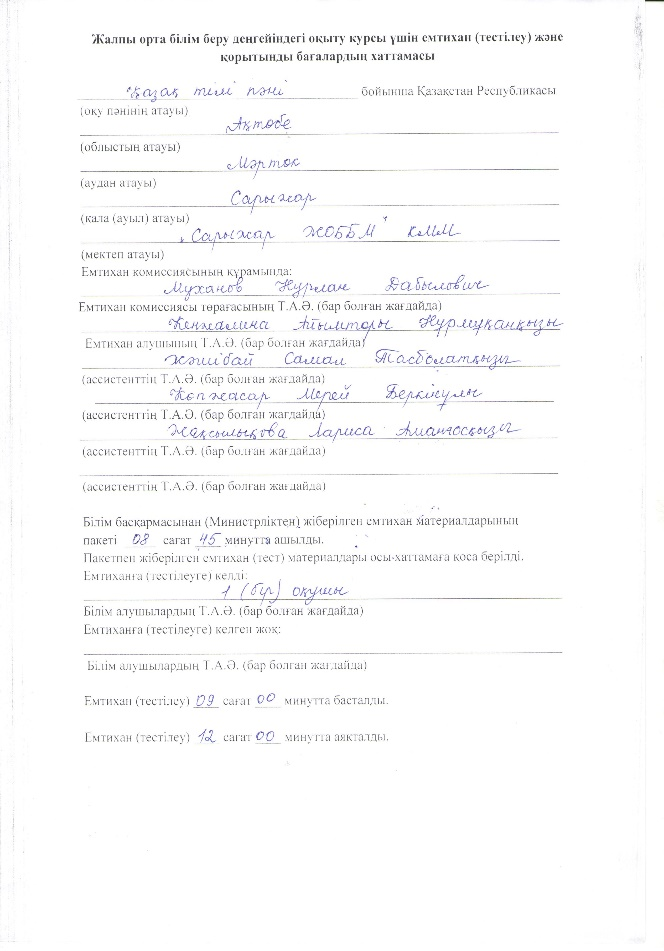 Жалпы орта білім беру деңгейіндегі оқыту курсы үшін емтихан (тестілеу) және
қорытынды бағалардың хаттамасы
Қазақ тілі пәні бойынша Қазақстан Республикасы
(оқу пәнінің атауы)
Ақтөбе
(облыстың атауы)
Мәртөк
(аудан атауы)
Сарыжар
(қала (ауыл) атауы)
Сарыжар ЖОББМ КММ
(мектеп атауы)
Емтихан комиссиясының құрамында:
Муханов Нурлан Дабылович
Емтихан комиссиясы төрағасының Т.А.Ә. (бар болған жағдайда)
Кенжалина Айымторы Нұрмұқанқызы
Емтихан алушының Т.А.Ә. (бар болған жағдайда)
Хәшібай Самал Тасболатқызы
(ассистенттің Т.А.Ә. (бар болған жағдайда)
Көпжасар Мерей
(ассистенттің Т.А.Ә. (бар болған жағдайда)
Жақсылықова Лариса Аманғосқызы
(ассистенттің Т.А.Ә. (бар болған жағдайда)
(ассистенттің Т.А.Ә. (бар болған жағдайда)
Білім басқармасынан (Министрліктен) жіберілген емтихан материалдарының
пакеті 08 сағат 45 минутта ашылды.
Пакетпен жіберілген емтихан (тест) материалдары осы хаттамаға қоса берілді.
Емтиханға (тестілеуге) келді:
1 (бір) оқушы
Білім алушылардың Т.А.Ә. (бар болған жағдайда)
Емтиханға (тестілеуге) келген жоқ:
Білім алушылардың Т.А.Ә. (бар болған жағдайда)
Емтихан (тестілеу) 09 сағат 00 минутта басталды.
Емтихан (тестілеу) 12 сағат 00 минутта аяқталды.